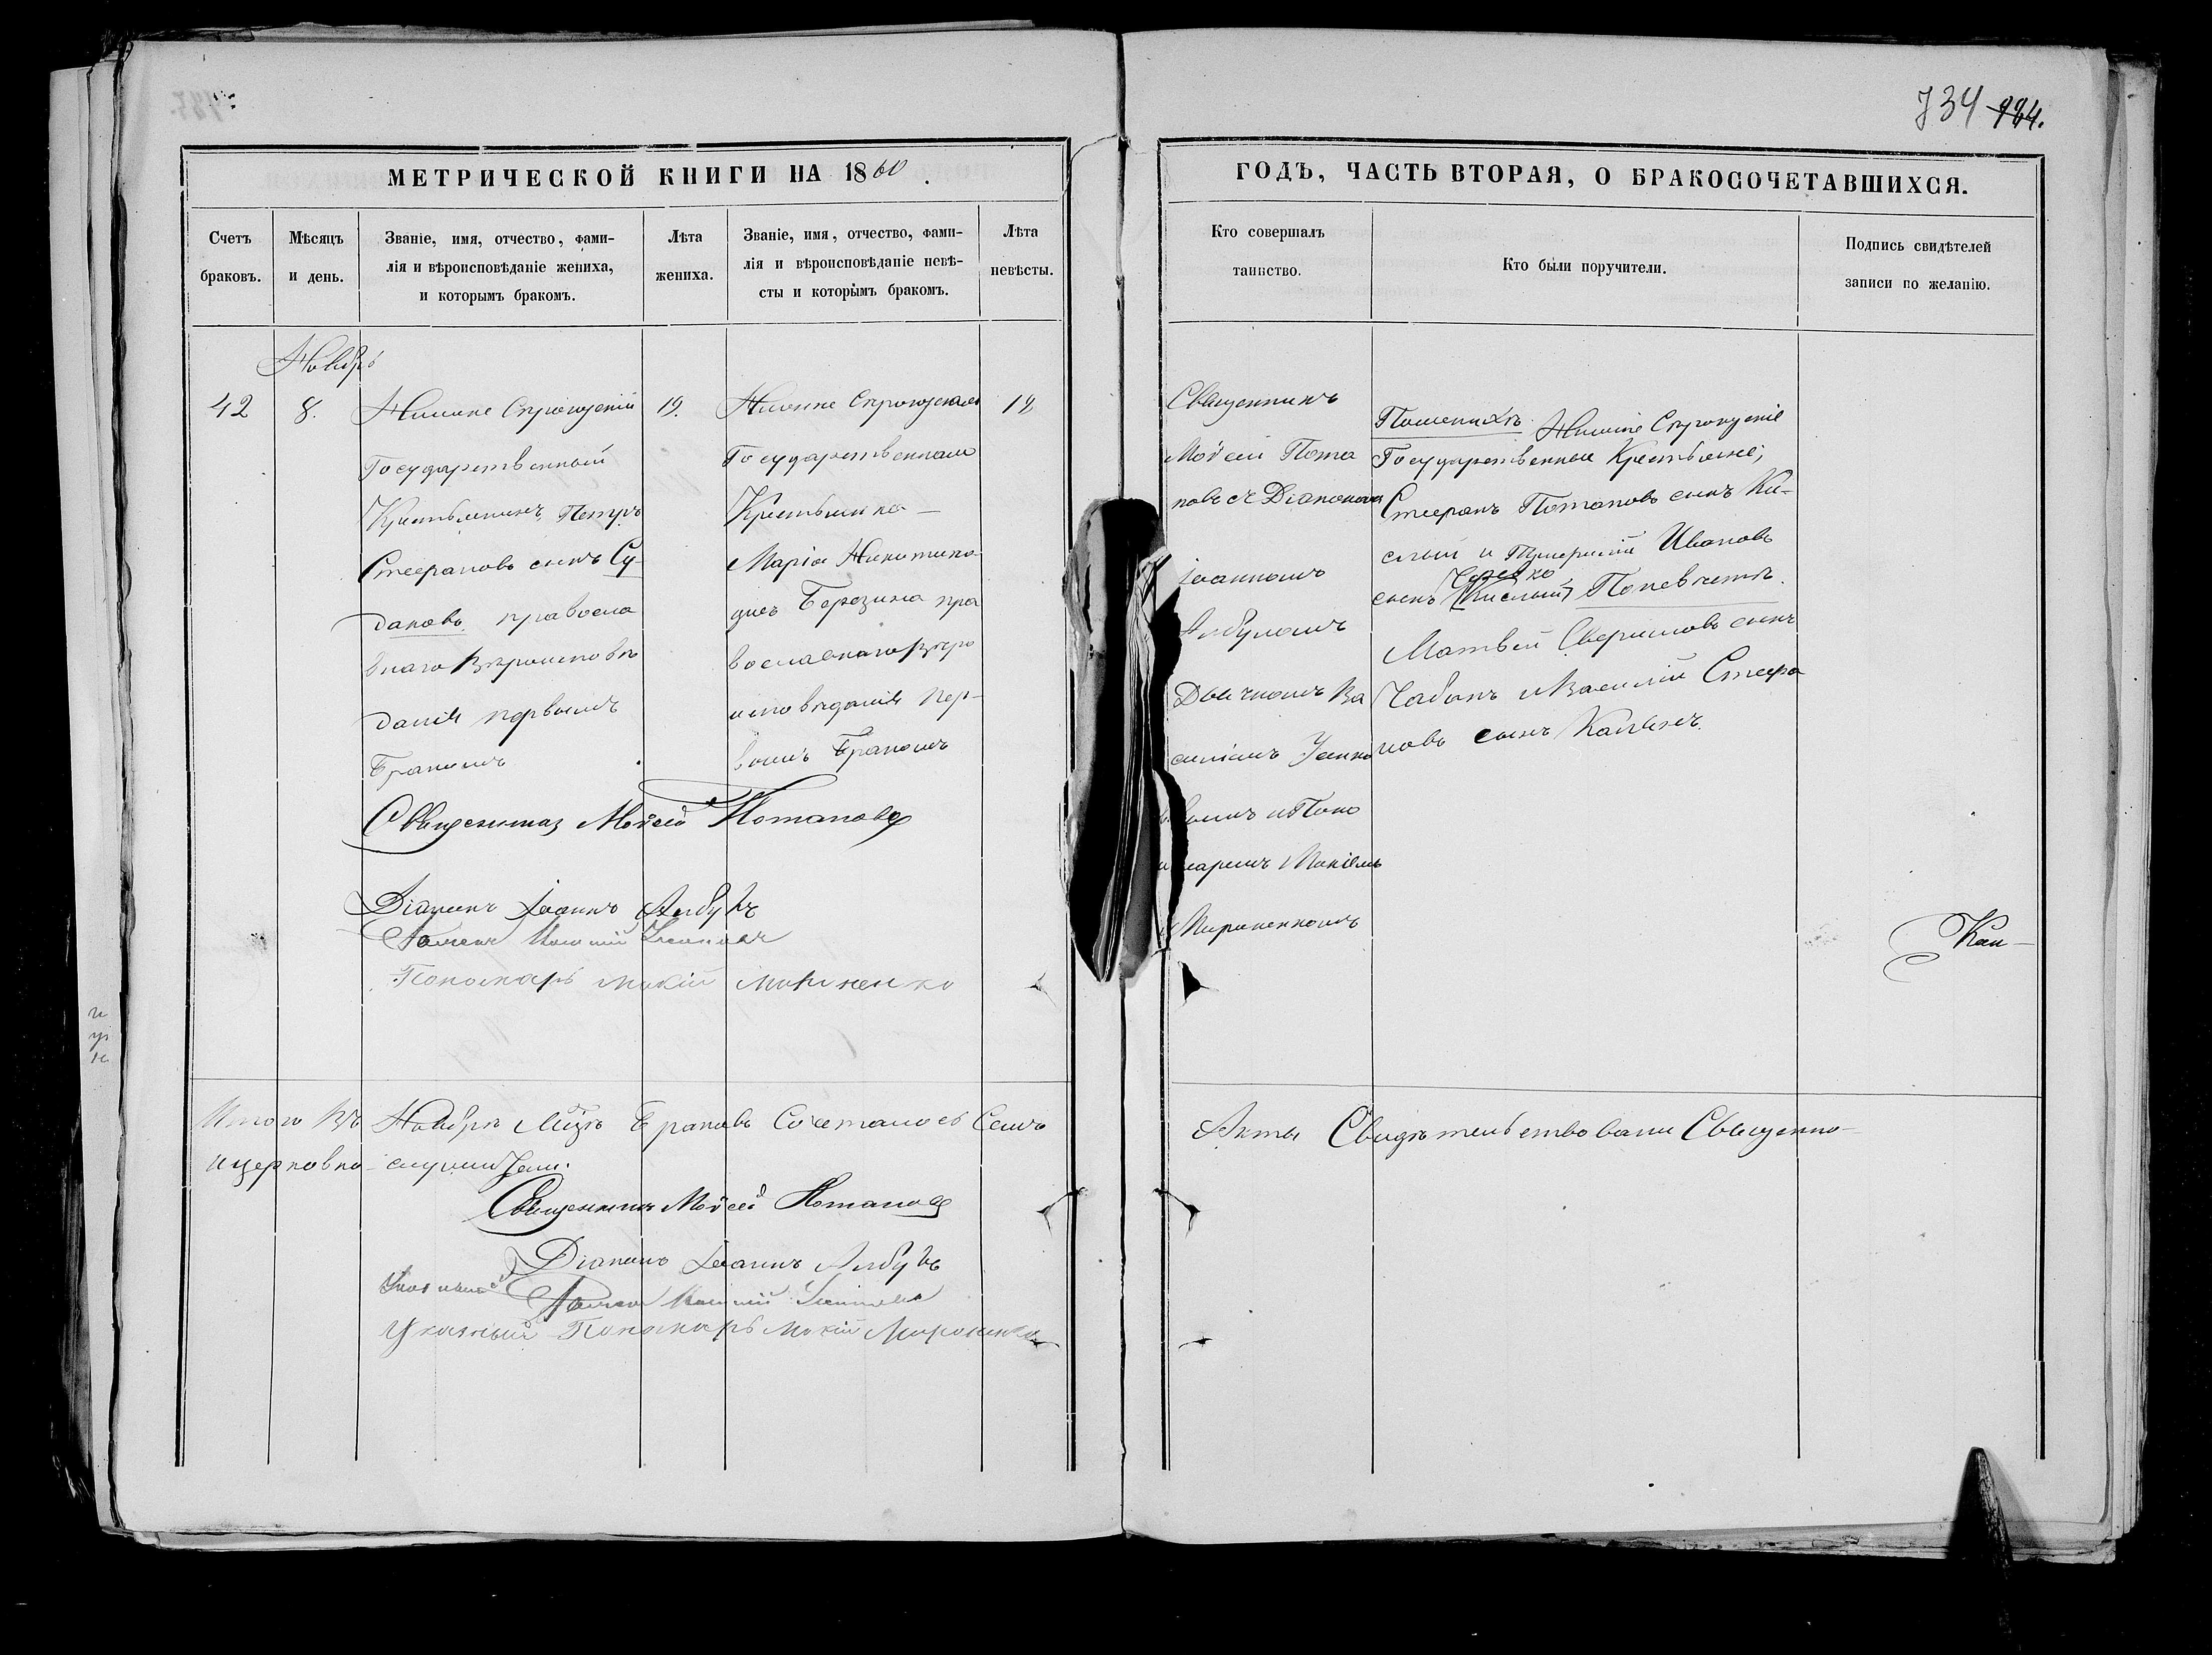 734 984.
МЕТРИЧЕСКОЙ КНИГИ НА 1860.
ГОДЪ, ЧАСТЬ ВТОРАЯ, О БРАКОСОЧЕТАВШИХСЯ.
Счетъ браковъ.
Мѣсяцъ и день.
Званіе, имя, отчество, фами-
лія и вѣроисповѣданіе жениха,
и которымъ бракомъ.
Лѣта жениха.
Званіе, имя, отчество, фами-
лія и вѣроисповѣданіе невѣ-
сты и которымъ бракомъ.
Лѣта невѣсты.
Кто совершалъ
таинство.
Кто были поручители.
Подпись свидѣтелей
записи по желанію.
Ноябрь
42
8.
Государственный
Крестьянинъ Петръ
Стефановъ сынъ Су
дановъ правосла
внаго вѣроисповѣ
данія первымъ
бракомъ
19.
Государственная
Крестьянка
Марія Никитина
Березина пра
вославнаго вѣро
исповѣданія пер-
вымъ бракомъ
Священникъ
Моѵсей Пота
повъ съ Діакономъ
Іоанномъ
Дьячкомъ Ва
силіемъ
вымъ и Поно
маремъ Мокіемъ
Мироненкомъ
По женихѣ
Государственные Крестьяне;
Стефанъ Потаповъ сынъ Ки-
слый и Ивановъ
сынъ (Кислый) По невѣстѣ.
Матвей сынъ
Чабанъ и Василій Стефа
новъ сынъ
Священникъ Моѵсей Потаповъ
Діаконъ Іоаннъ
Пономарь Мокій Мироненко
Кан-
Итого въ Ноябрѣ Мцѣ браковъ сочеталось Семь
Акты Свидѣтельствовали Священно-
и церковно-служители.
Священникъ Моѵсей Потаповъ
Діаконъ Іоаннъ
Указный Пономарь Мокій Мироненко